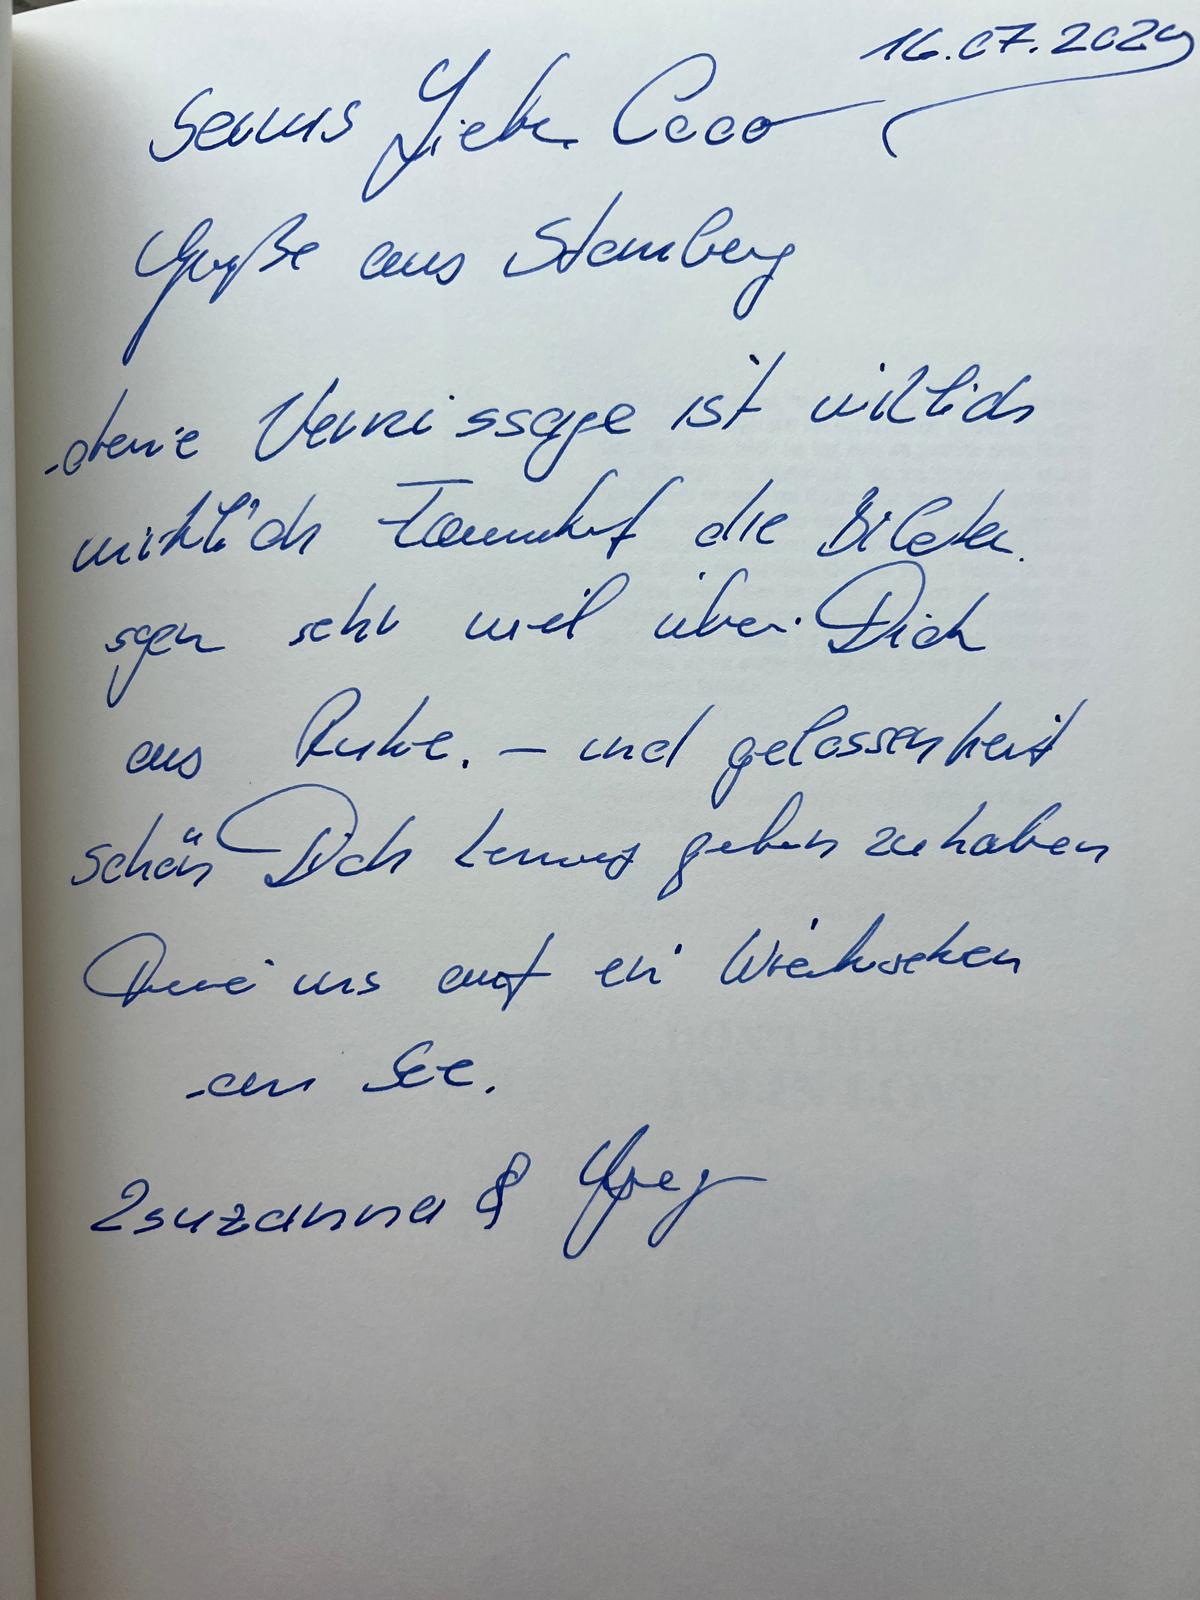 16.07.2029
Servus Liebe Coco
Grüße aus Starnberg
deine Vernissage ist wirklich
wirklich Traumhaft die Bilder
sagen sehr viel über Dich
aus Ruhe. – und gelassenheit
schön Dich kennen gelernt zu haben
uns auf ein Wiedersehen
am See.
Zsuzanna & Greg